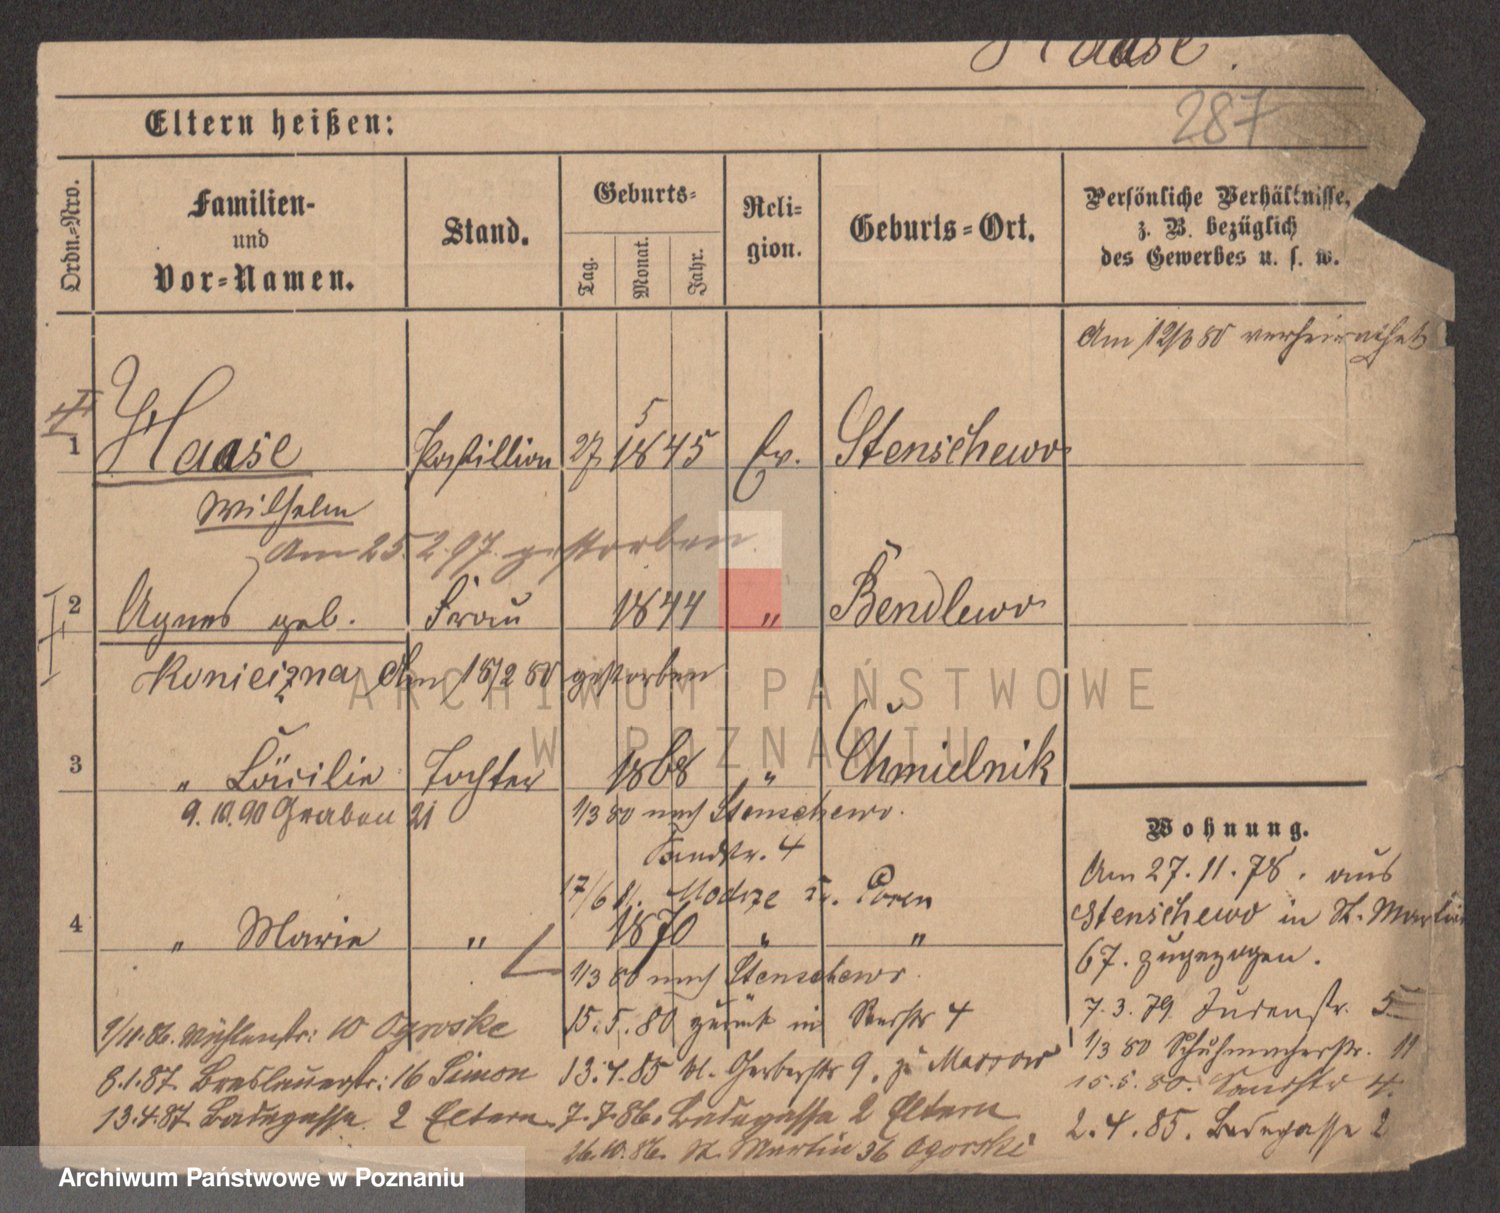 Haase.
287
Eltern heißen:
Ordn.-Nro.
Familien-
und
Vor-Namen.
Stand.
Geburts-
Tag.
Monat.
Jahr.
Reli-
gion.
Geburts-Ort.
Persönliche Verhältnisse,
z. B. bezüglich
des Gewerbes u. s. w.
Am 12/3 80 verheirathet
1 Haase Postillion 27 5 1845 Ev. Stenschewo
Wilhelm
Am 25.2.97. gestorben
2 Agnes geb. Frau 1844 " Bendlewo
Konieczna Am 18/2 80 gestorben
3 " Cäcilie Tochter 1868 " Chmielnik
9.10.90 Graben 21
1/3 80 nach Stenschewo.
Sandstr. 4
17/6 81. Modrze Kr. Posen
4 " Marie " 1870 " "
1/3 80 nach Stenschewo.
15.5.80 zurück in 4
9/11.86. Mühlenstr: 10 Ogorske
13.4.85 kl. Gerberstr 9. zu Marrow
8.1.87. Breslauerstr: 16 Simon
7.7.86. Badegasse 2 Eltern
13.4.87. Badegasse. 2 Eltern.
26.10.86. St. Martin 36 Ogorski
Wohnung.
Am 27.11.78. aus
Stenschewo in St. Martin
67. zugezogen.
7.3.79. Judenstr. 5
1/3 80 Schuhmacherstr. 11
15.5.80. Sandstr 4.
2.4.85. Badegasse 2
ARCHIWUM PAŃSTWOWE
W POZNANIU
Archiwum Państwowe w Poznaniu